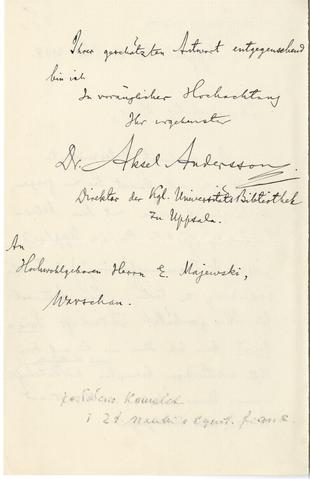 Ihrer geschätzten Antwort entgegensehend
bin ich
In vorzüglicher Hochachtung
Ihr ergebenster
Dr. Aksel Andersson.
Direktor der Kgl. Universitäts Bibliothek
zu Uppsala.
An
Hochwohlgeboren Herrn E. Majewski,
Warschau.
i 24